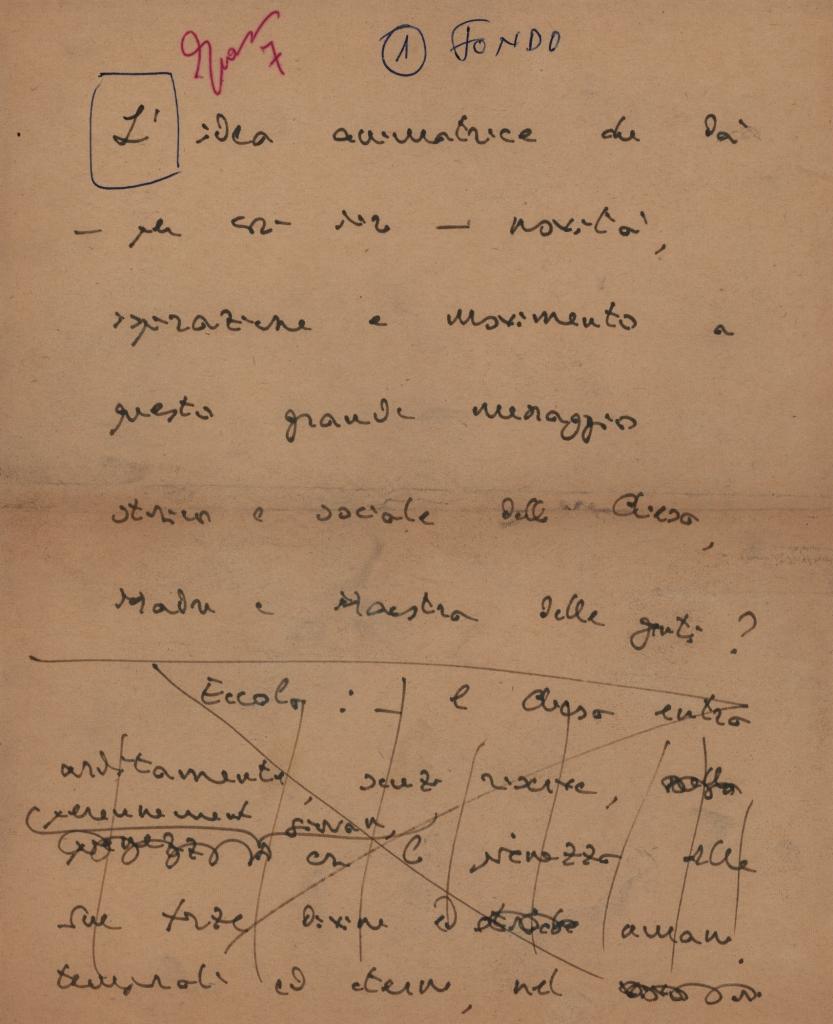 7 1 FONDO
L' idea animatrice che dà
- per così dire - novità,
ispirazione e movimento a
questo grande messaggio
storico e sociale della Chiesa,
Madre e Maestra delle genti?
Eccola: - la Chiesa entra
arditamente, senza riserve,
perennemente giovane,
con la sicurezza delle
sue forze divine ed umane
temporali ed eterne, nel